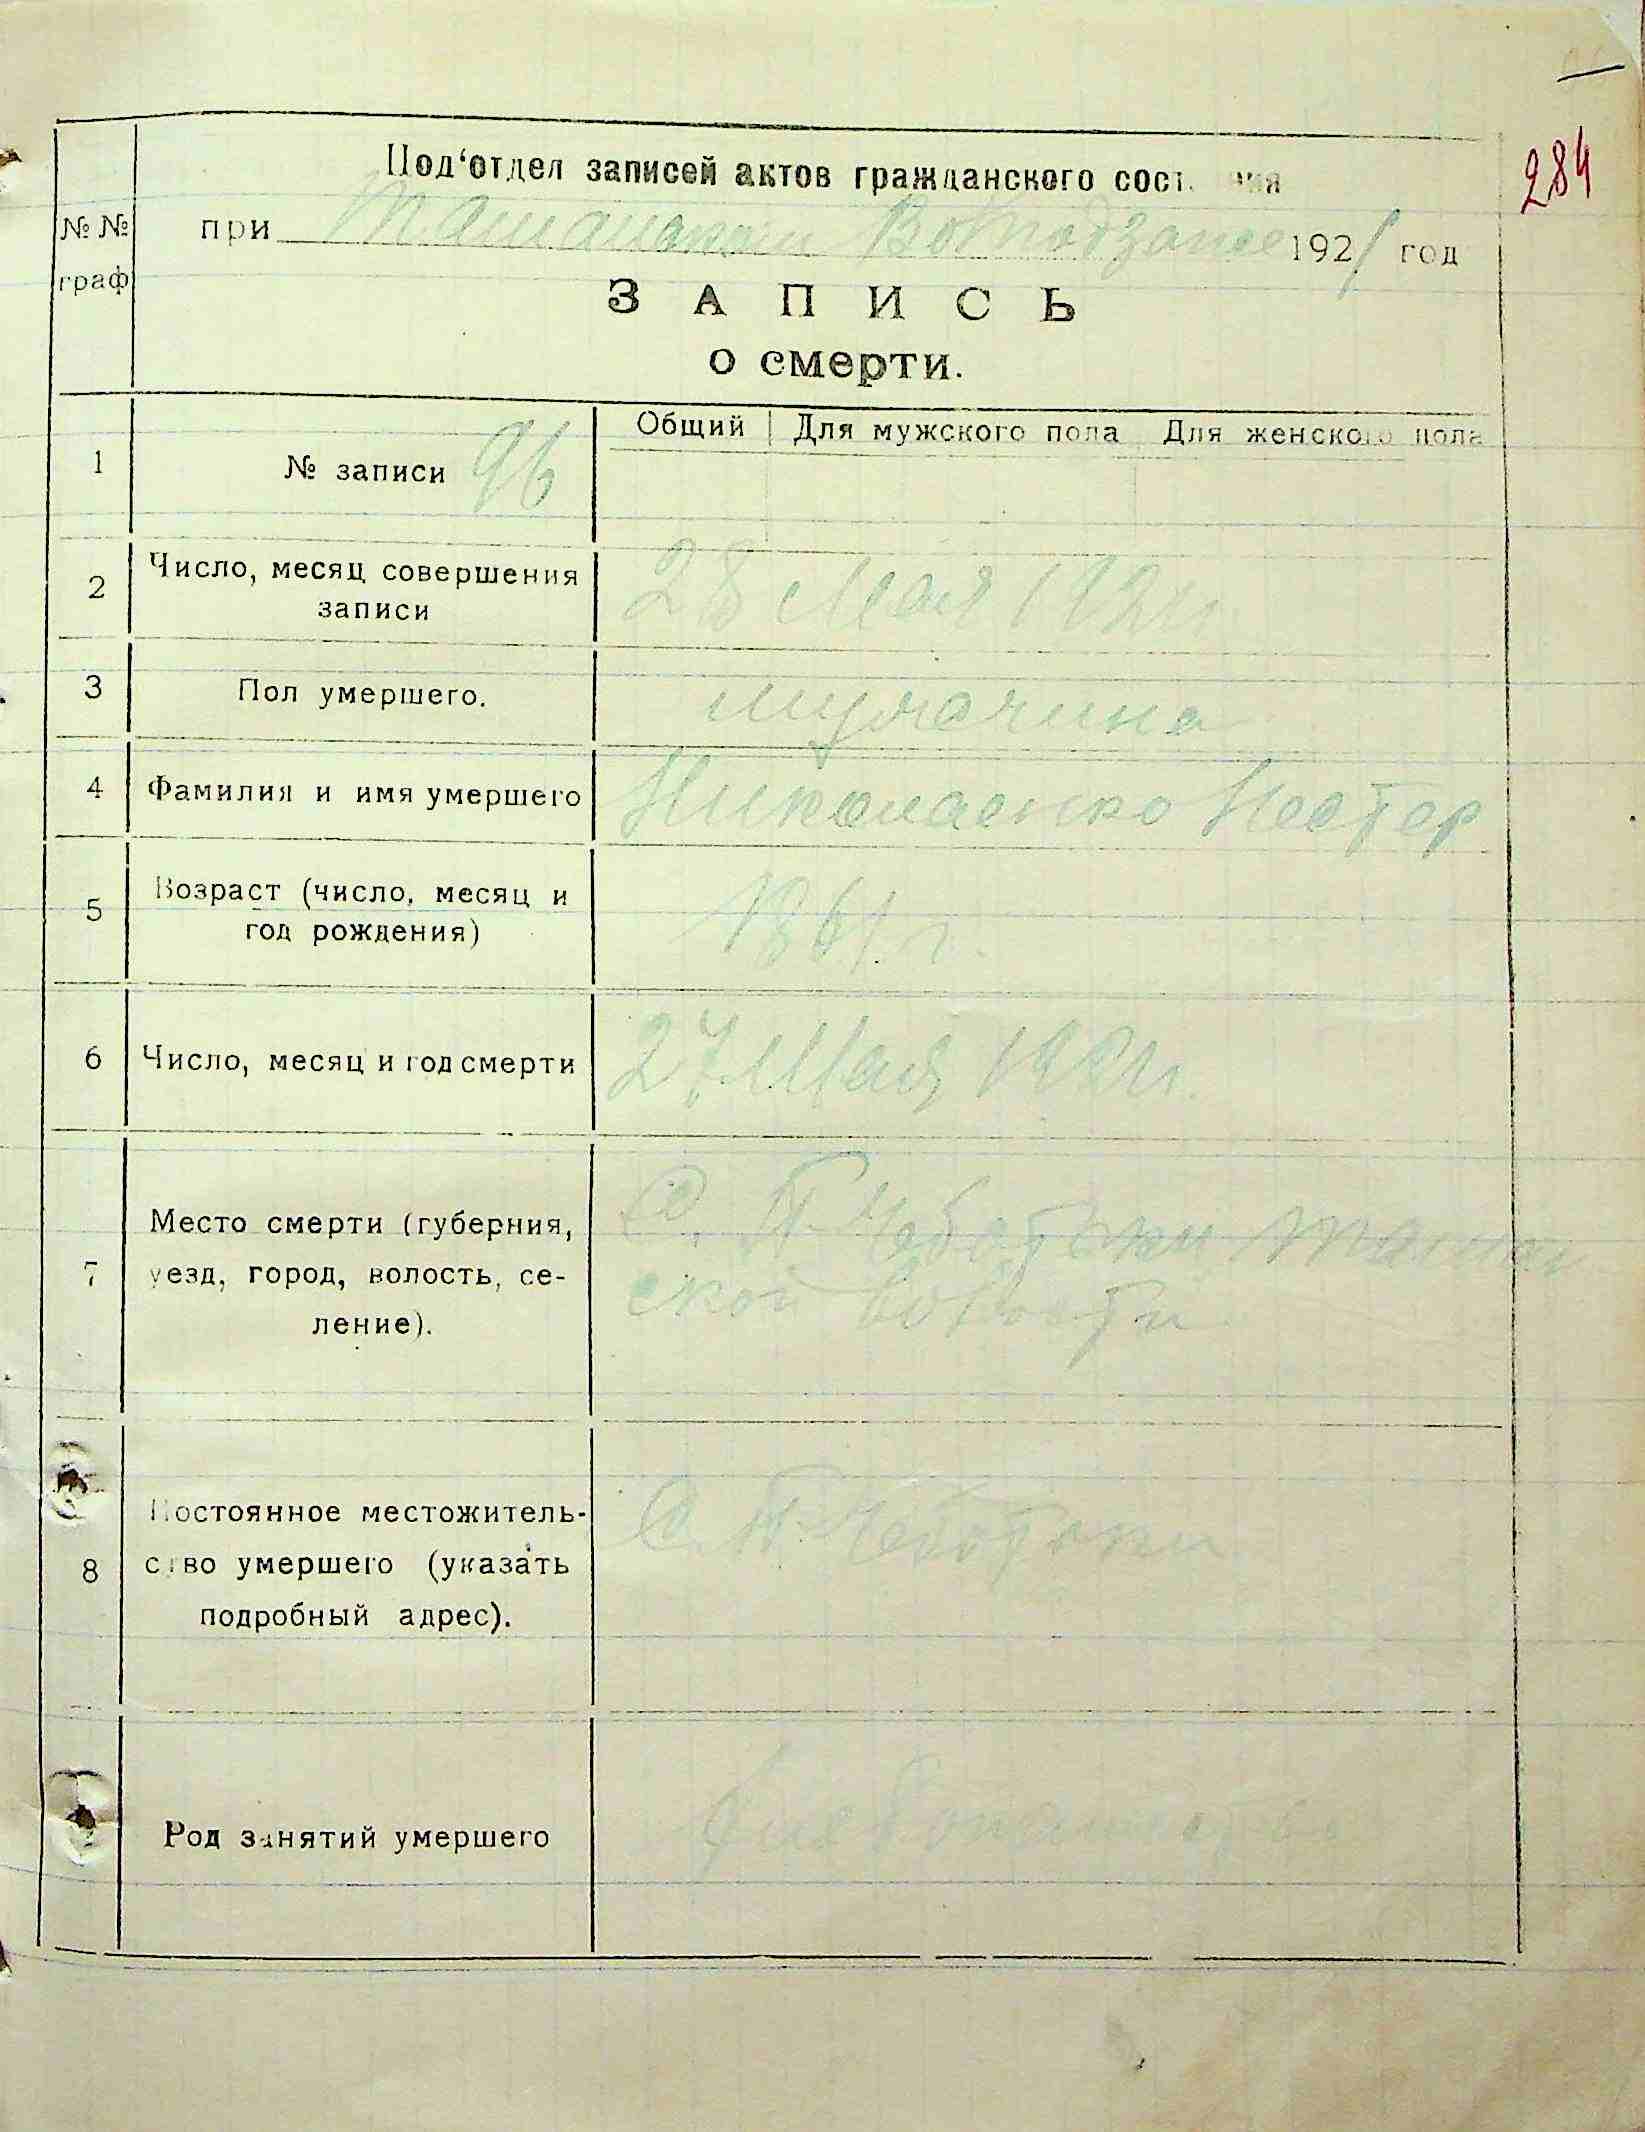 284
Под‘отдел записей актов гражданского состояния
№ № граф
при Ташанском Волподзагсе 1921 год
ЗАПИСЬ
о смерти.
Общий Для мужского пола Для женского пола
1 № записи 96
2 Число, месяц совершения
записи
28 Мая 1921 г.
3 Пол умершего. мужчина
4 Фамилия и имя умершего Николаенко Нестер
5 Возраст (число, месяц и
год рождения)
1861 г.
6 Число, месяц и год смерти 27 Мая 1921 г.
7 Место смерти (губерния,
уезд, город, волость, се-
ление).
С. П. Чоботьки Ташан
ской волости
8 Постоянное местожитель-
ство умершего (указать
подробный адрес).
С. П. Чоботьки
Род занятий умершего